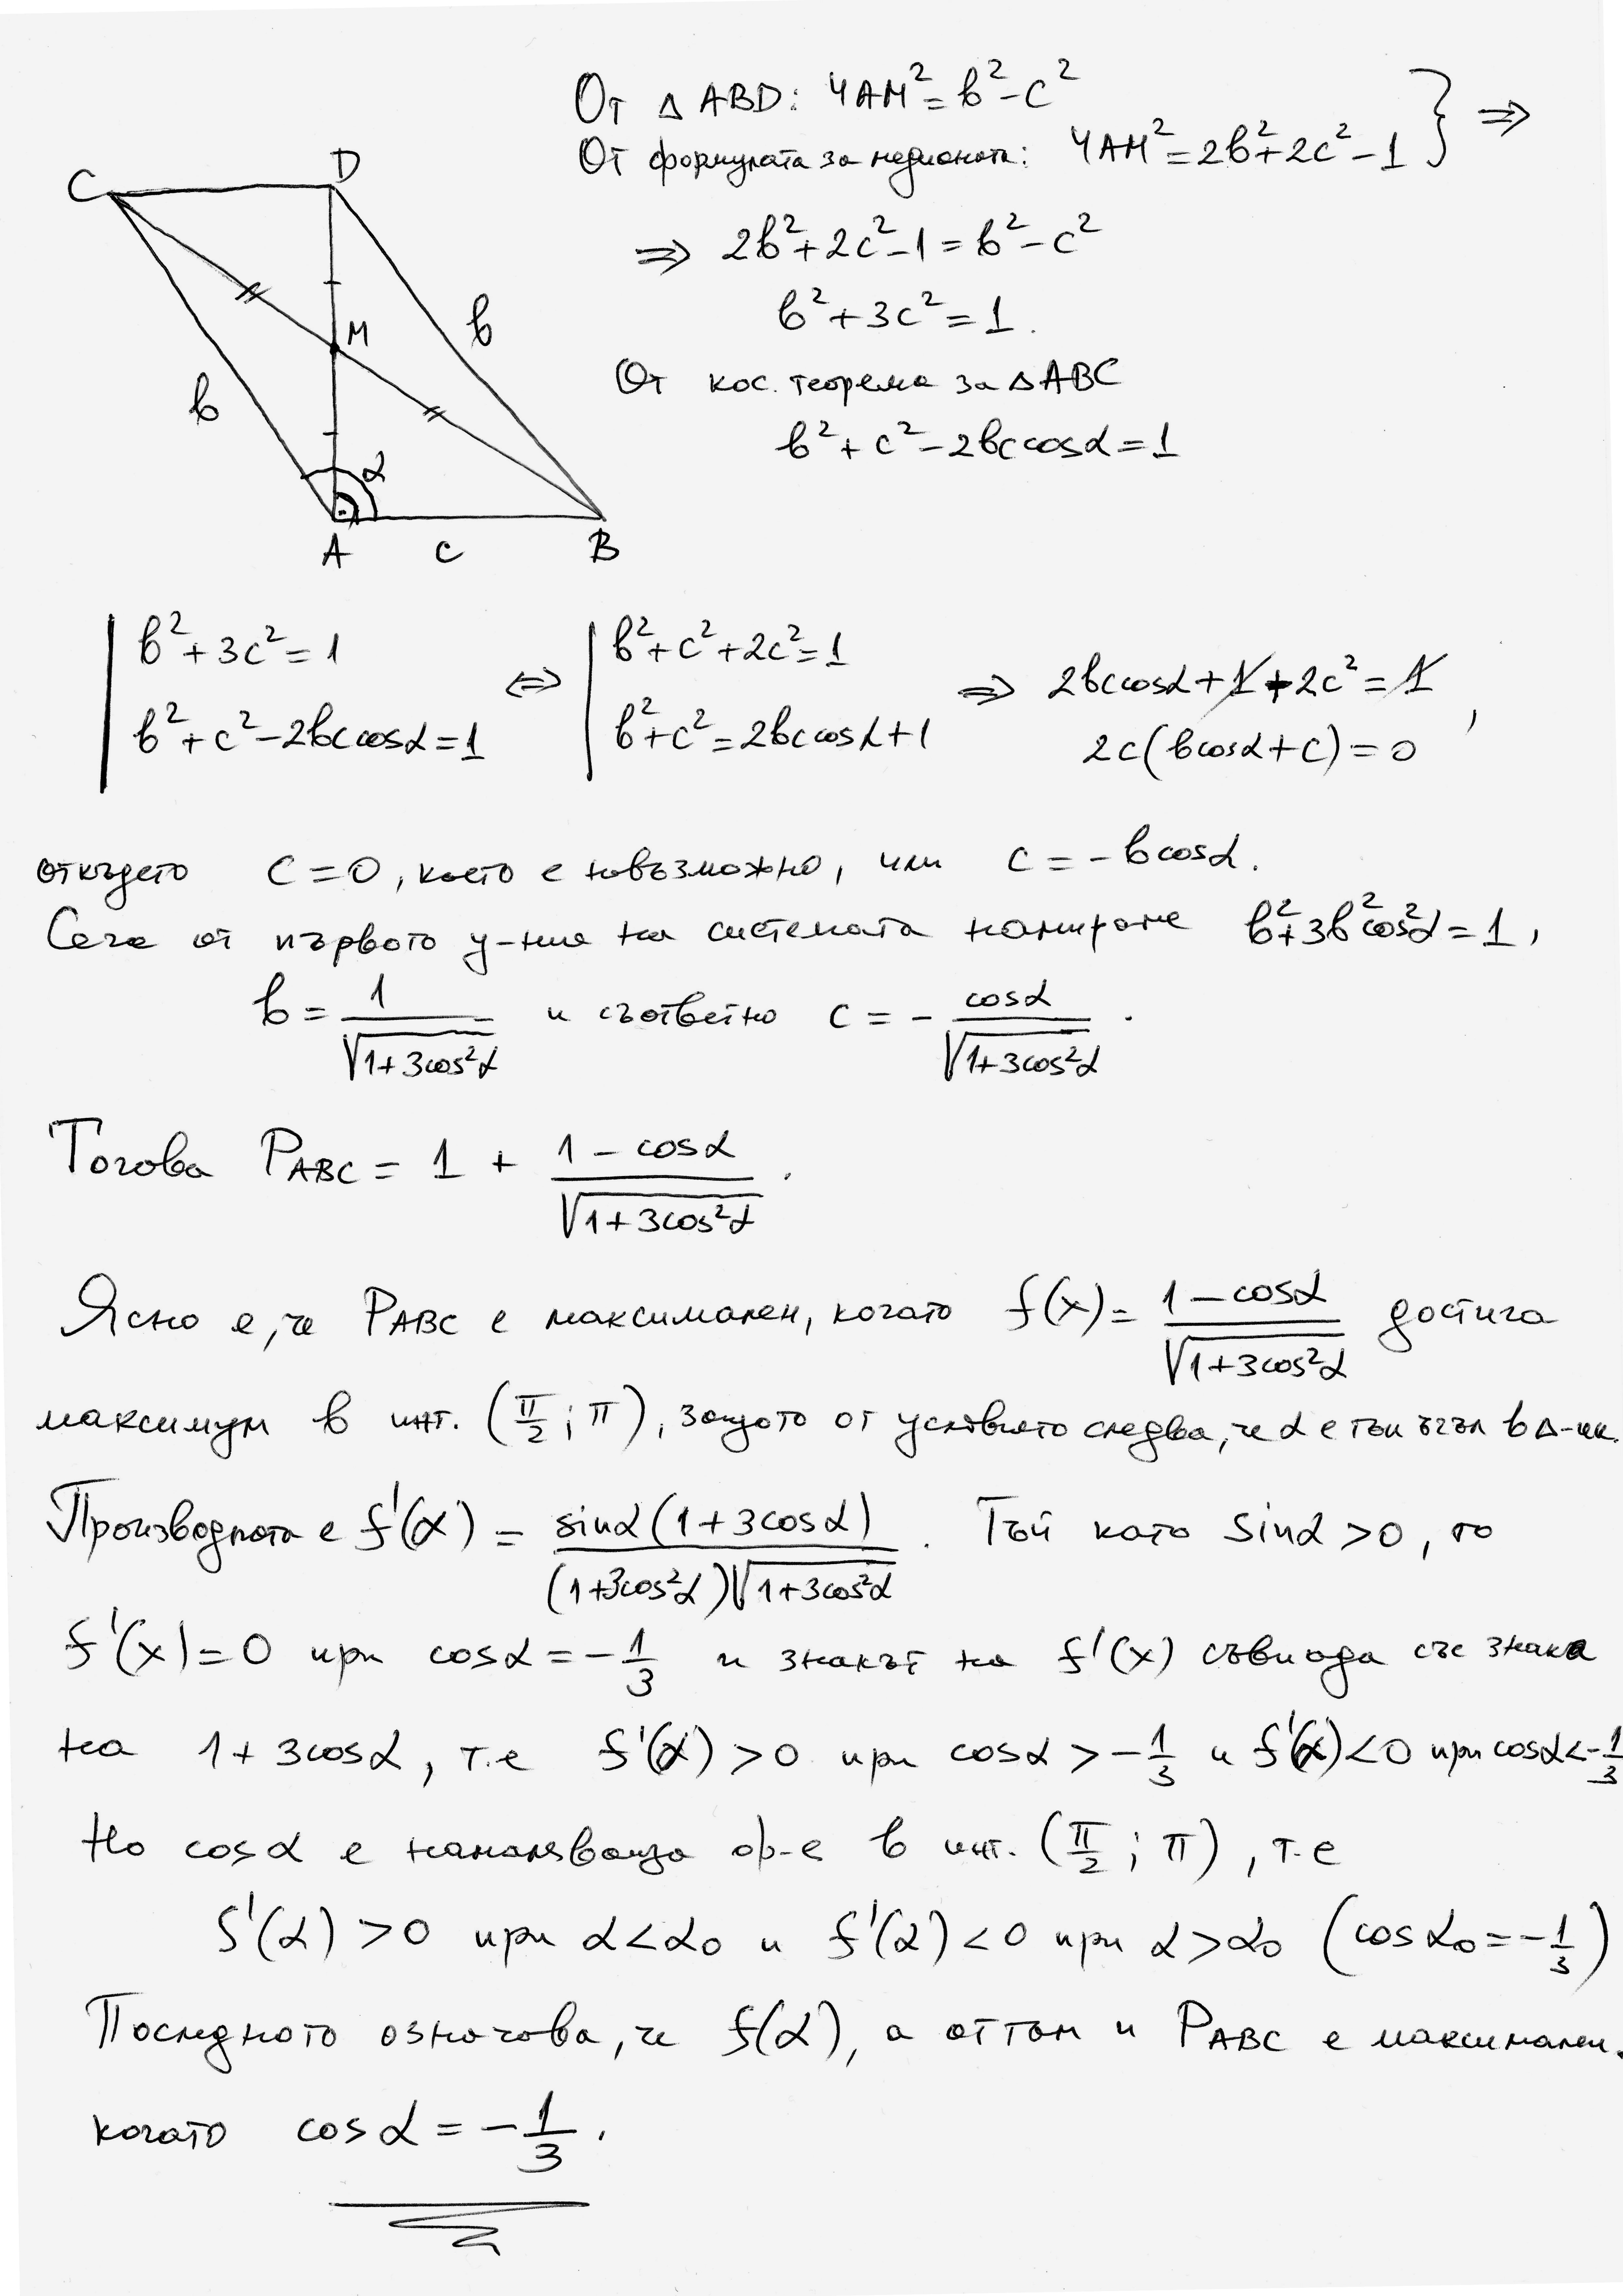 От △ ABD: 4AM² = b² - c²
От формулата за медианата: 4AM² = 2b² + 2c² - 1 } ⇒
⇒ 2b² + 2c² - 1 = b² - c²
b² + 3c² = 1.
От кос. теорема за △ABC
b² + c² - 2bc cosα = 1
C D
M
b b
α
A c B
| b² + 3c² = 1 ⇔ | b² + c² + 2c² = 1 ⇒ 2bc cosα + 1 + 2c² = 1
| b² + c² - 2bc cosα = 1 | b² + c² = 2bc cosα + 1 2c(b cosα + c) = 0 ,
откъдето c = 0, което е невъзможно, или c = - b cosα.
Сега от първото у-ние на системата намираме b² + 3b² cos²α = 1,
b = 1/√(1+3cos²α) и съответно c = - cosα/√(1+3cos²α) .
Тогава P_ABC = 1 + (1 - cosα)/√(1+3cos²α) .
Ясно е, че P_ABC е максимален, когато f(x) = (1 - cosα)/√(1+3cos²α) достига
максимум в инт. (π/2 ; π), защото от условието следва, че α е тъп ъгъл в △-ик.
Производната е f'(α) = sinα(1+3cosα)/((1+3cos²α)√(1+3cos²α)) . Тъй като sinα > 0, то
f'(x) = 0 при cosα = -1/3 и знакът на f'(x) съвпада със знака
на 1 + 3cosα, т.е f'(α) > 0 при cosα > -1/3 и f'(α) < 0 при cosα < -1/3
Но cosα е намаляваща ф-е в инт. (π/2 ; π), т.е
f'(α) > 0 при α < α₀ и f'(α) < 0 при α > α₀ (cosα₀ = -1/3)
Последното означава, че f(α), а оттам и P_ABC е максимален.
когато cosα = -1/3 .